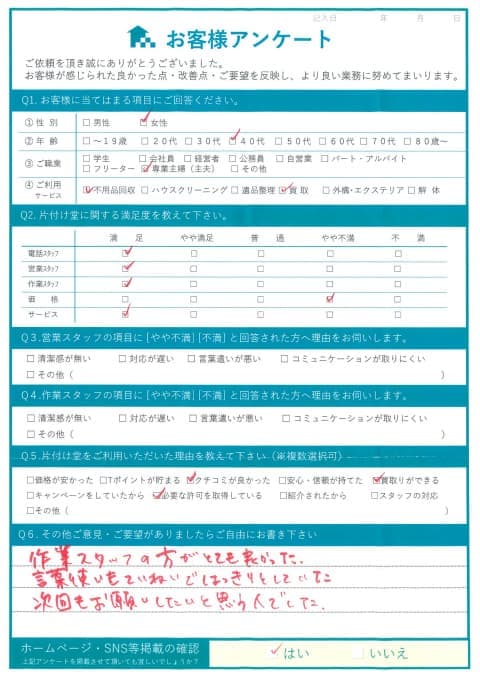 記入日　年　月　日
お客様アンケート
ご依頼を頂き誠にありがとうございました。
お客様が感じられた良かった点・改善点・ご要望を反映し、より良い業務に努めてまいります。
Q1. お客様に当てはまる項目にご回答ください。
①性別 □男性 ☑女性
②年齢 □〜19歳 □20代 □30代 ☑40代 □50代 □60代 □70代 □80歳〜
③ご職業 □学生 □会社員 □経営者 □公務員 □自営業 □パート・アルバイト
□フリーター ☑専業主婦（主夫） □その他
④ご利用 ☑不用品回収 □ハウスクリーニング □遺品整理 ☑買取 □外構・エクステリア □解体
サービス
Q2. 片付け堂に関する満足度を教えて下さい。
満足 やや満足 普通 やや不満 不満
電話スタッフ ☑ □ □ □ □
営業スタッフ ☑ □ □ □ □
作業スタッフ ☑ □ □ □ □
価格 □ □ □ ☑ □
サービス ☑ □ □ □ □
Q3.営業スタッフの項目に［やや不満］［不満］と回答された方へ理由をお伺いします。
□清潔感が無い □対応が遅い □言葉遣いが悪い □コミュニケーションが取りにくい
□その他（　）
Q4.作業スタッフの項目に［やや不満］［不満］と回答された方へ理由をお伺いします。
□清潔感が無い □対応が遅い □言葉遣いが悪い □コミュニケーションが取りにくい
□その他（　）
Q5.片付け堂をご利用いただいた理由を教えて下さい（※複数選択可）
□価格が安かった □Tポイントが貯まる ☑クチコミが良かった □安心・信頼が持てた ☑買取りができる
□キャンペーンをしていたから ☑必要な許可を取得している □紹介されたから □スタッフの対応
□その他（　）
Q6. その他ご意見・ご要望がありましたらご自由にお書き下さい
作業スタッフの方がとても良かった.
言葉使いもていねいではっきりとしていた
次回もお願いしたいと思う人でした.
ホームページ・SNS等掲載の確認 ☑はい □いいえ
上記アンケートを掲載させて頂いても宜しいでしょうか？